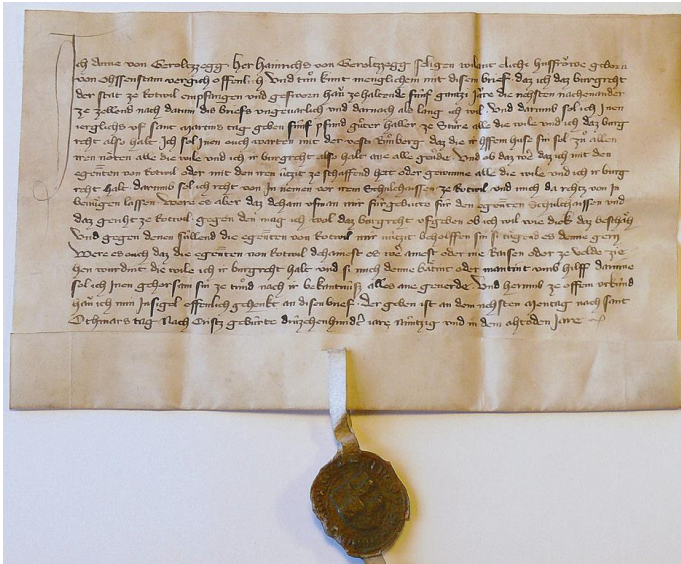 Ich Anne von Geroltzegg Her Hainrichs von Geroltzegg seligen wilant elichi husfrowe geborn
von Ohssenstain vergich offenlich vnd tun kunt menglichem mit disem brief daz ich daz burgrecht
der stat ze Rotwil empfangen vnd gesworn han ze haltende fünf gantzi Jare die nehsten nachenander
ze zellend nach datum diz briefs vngeuarlich vnd darnach als lang ich wil Vnd darumb sol ich Inen
ierglichs vf sant Martins tag geben fünf pfund guter haller ze Sture alle die wile vnd ich daz burg
recht also halt Ich sol Inen ouch warten mit der vesti daz die ir offem huse sin sol zu allen
iren nöten alle die wile vnd ich ir burgrecht also halt ane alle geuerde Vnd ob daz wer daz ich mit den
egenten von Rotwil oder mit den iren ützit ze schaffend hett oder gewunne alle die wile vnd ich ir burg
recht halt darumb sol ich recht von In nemen vor irem Schulthaissen ze Rotwil vnd mich da rechtz von In
benügen lassen Were es aber daz deham vsman mir fürgebutte für den egenten Schulthaissen vnd
daz geriht ze Rotwil gegen den mag ich wol daz burgreht vfgeben ob ich wil wie dick daz beschäh
Vnd gegen denen süllend die egenten von Rotwil mir nützit beholffen sin si tügend es denne gern
Were es ouch daz die egenten von Rotwil dehainest es we ainest oder me Raisen oder ze Velde zie
hen wurdint die wile ich ir burgrecht halt vnd si mich denne batint oder mantint vmb hilff darinne
sol ich Inen gehorsam sin ze tund nach ir bekantnüsz alles ane geuerde Vnd herumb ze offem vrkünd
han ich min Insigel offenlich gehenkt an disen brief Der geben ist an dem nehsten Mentag nach sant
Othmars tag Nach Cristz gebürte drüzehenhundert iare Nüntzig vnd in dem ahtoden Jare